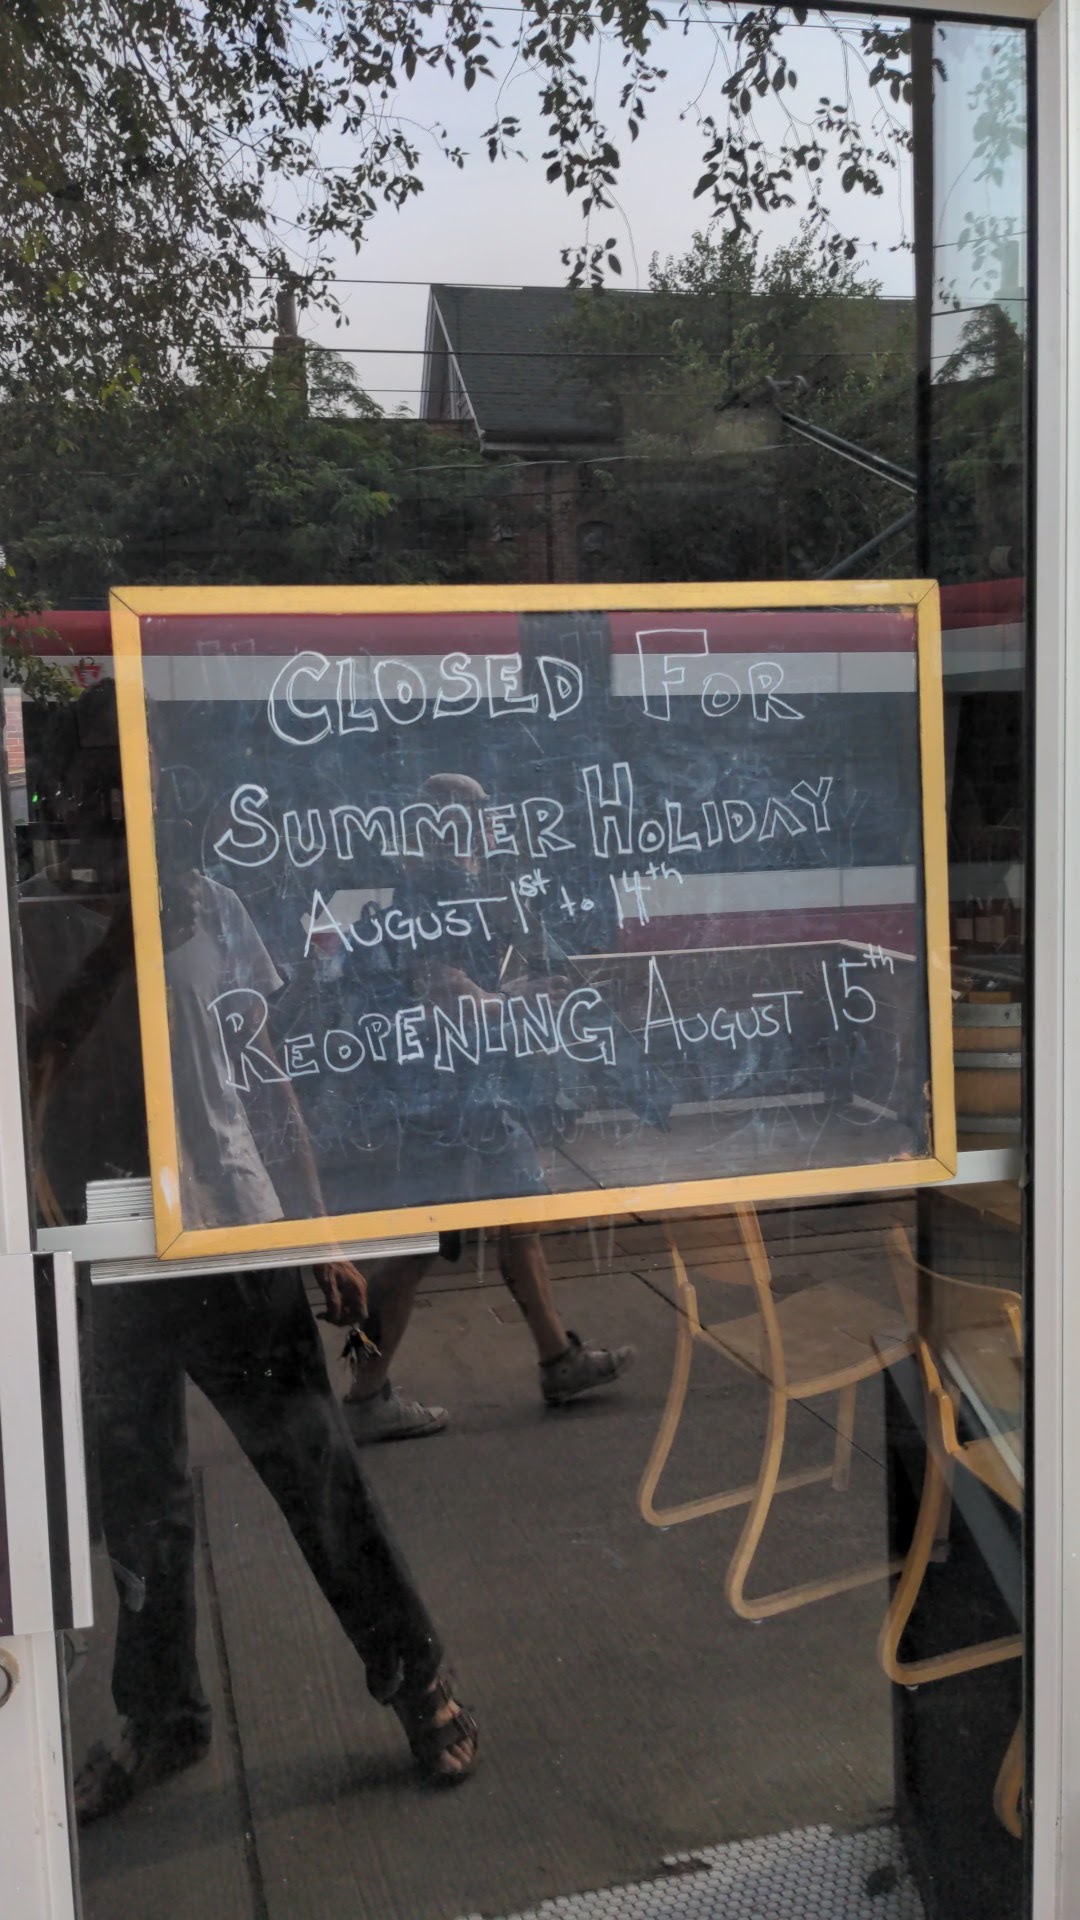 CLOSED FOR
SUMMER HOLIDAY
AUGUST 1st to 14th
REOPENING AUGUST 15th